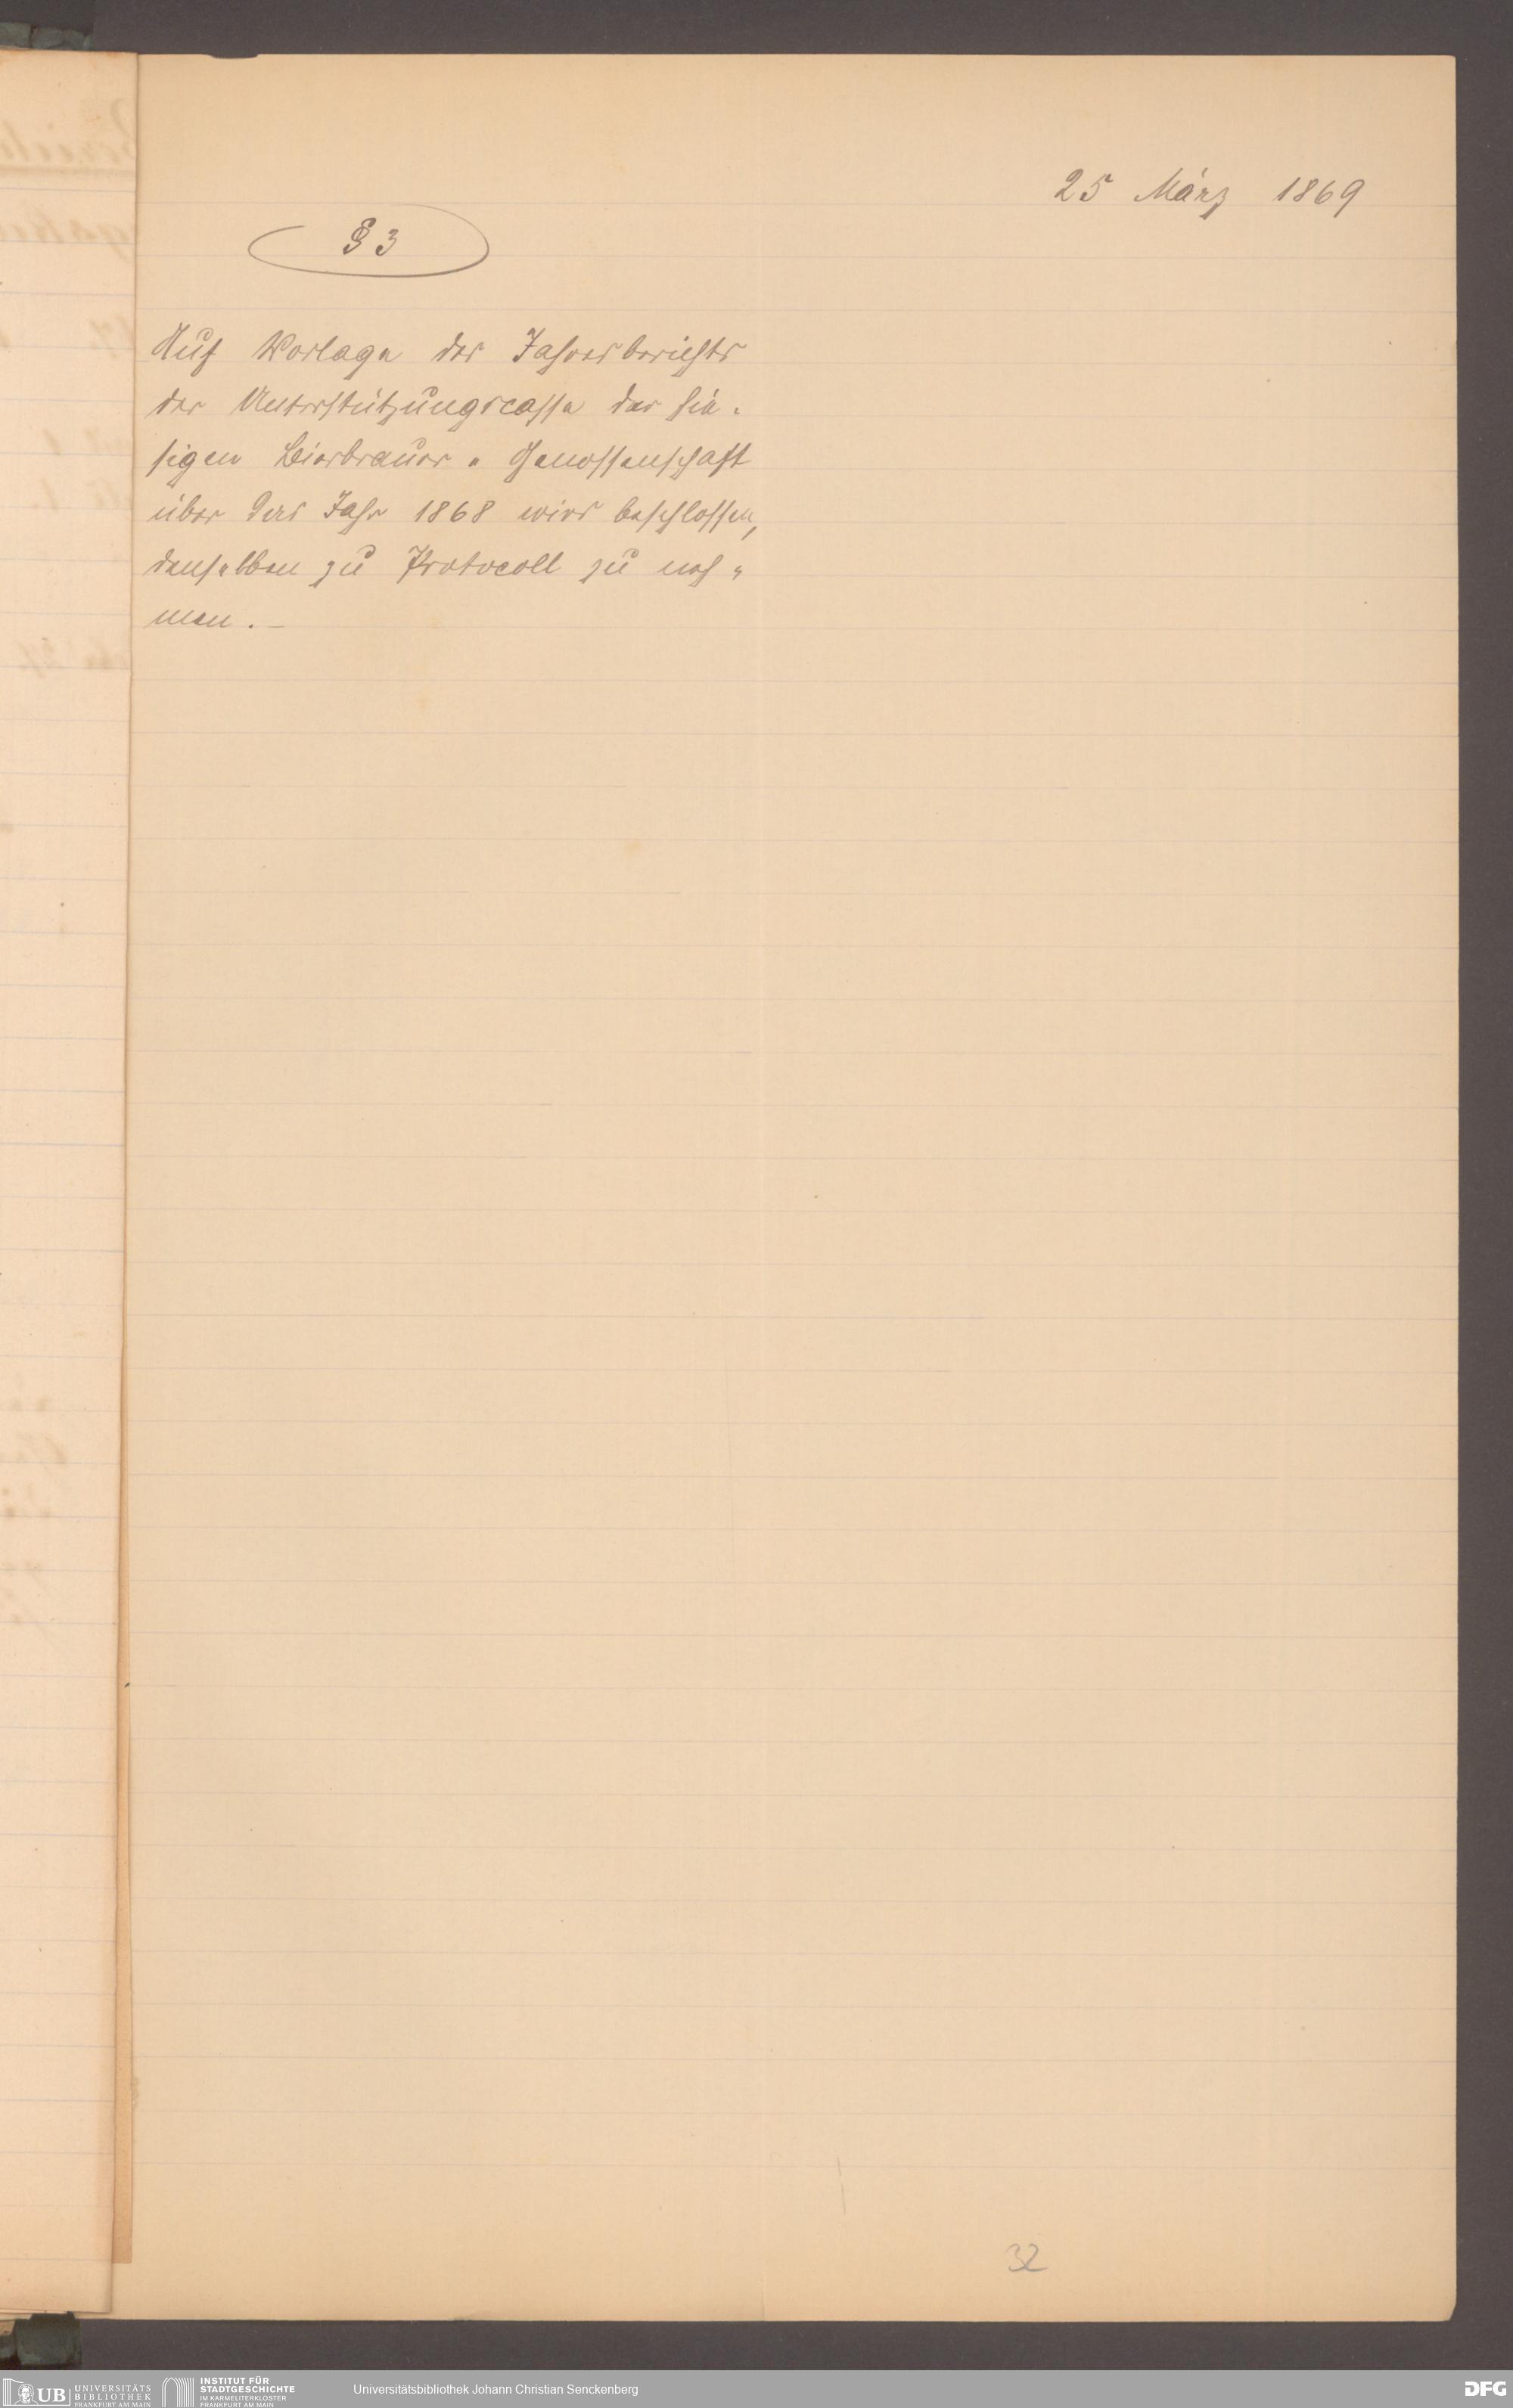 25 März 1869
§ 3
Auf Vorlage des Jahresberichts
der Unterstützungscasse der hie-
sigen Bierbrauer-Genossenschaft
über das Jahr 1868 wird beschlossen,
denselben zu Protocoll zu neh-
men. –
32
UB UNIVERSITÄTS
BIBLIOTHEK
FRANKFURT AM MAIN
INSTITUT FÜR
STADTGESCHICHTE
IM KARMELITERKLOSTER
FRANKFURT AM MAIN
Universitätsbibliothek Johann Christian Senckenberg
DFG